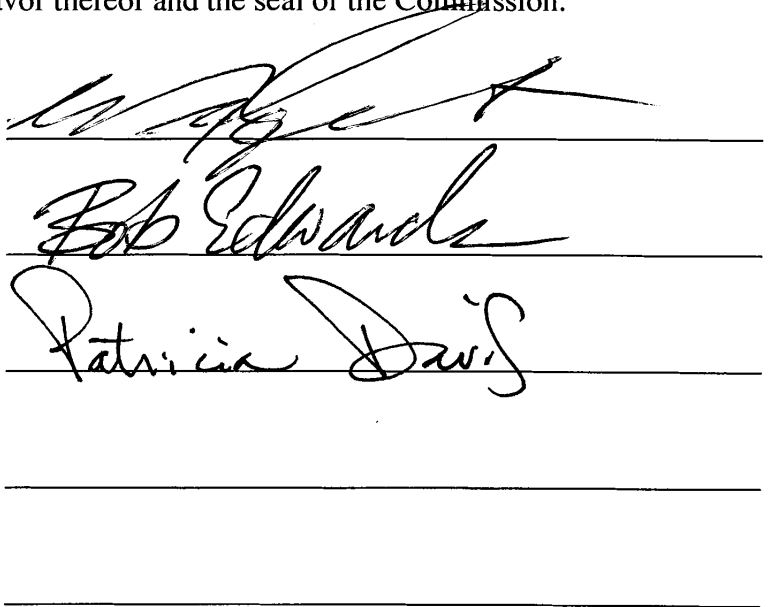 thereor and the seal of the Commission.
Bob Edwards
Patricia Davis